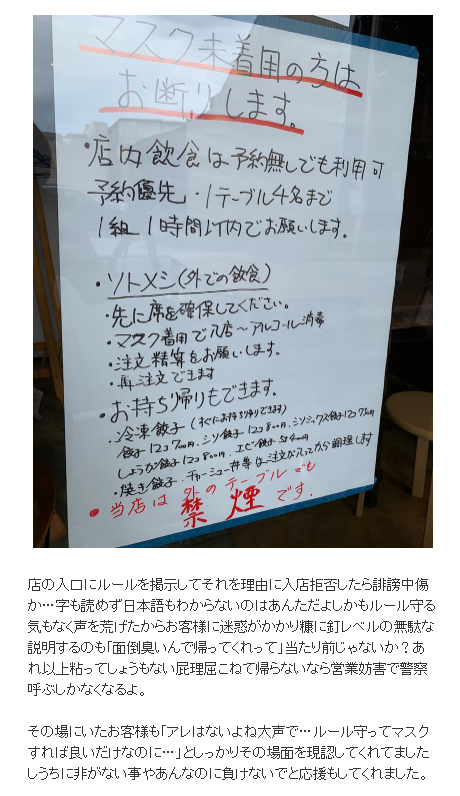 マスク未着用の方は
お断りします。
・店内飲食は予約無しでも利用可
予約優先・1テーブル4名まで
1組 1時間以内でお願いします。
・ソトメシ(外での飲食)
・先に席を確保してください。
・マスク着用で入店～アルコール消毒
・注文精算をお願いします。
・再注文できます
・お持ち帰りもできます。
・冷凍餃子(すぐにお持ち帰りできます)
餃子12コ700円、シソ餃子12コ800円、シソミックス餃子12コ750円
しょうが餃子12コ800円、エビ餃子5コ400円
・焼き餃子、チャーシュー丼等は注文が入ってから調理します
・当店は外のテーブルでも
禁煙です.
店の入口にルールを掲示してそれを理由に入店拒否したら誹謗中傷
か…字も読めず日本語もわからないのはあんただよしかもルール守る
気もなく声を荒げたからお客様に迷惑がかかり糠に釘レベルの無駄な
説明するのも「面倒臭いんで帰ってくれって」当たり前じゃないか？あ
れ以上粘ってしょうもない屁理屈こねて帰らないなら営業妨害で警察
呼ぶしかなくなるよ。
その場にいたお客様も「アレはないよね大声で…ルール守ってマスク
すれば良いだけなのに…」としっかりその場面を現認してくれてました
しうちに非がない事やあんなのに負けないでと応援もしてくれました。